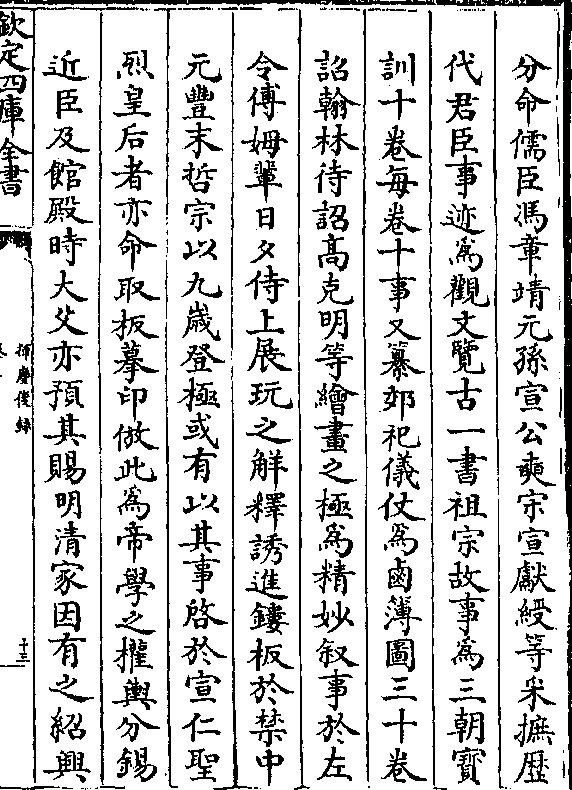 分命儒臣馮章靖元孫宣公奭宋宣獻綬等采摭歴
代君臣事迹為觀文覽古一書祖宗故事為三朝寳
訓十卷每卷十事又纂郊祀儀仗為鹵簿圖三十卷
詔翰林待詔髙克明等繪畫之極為精妙叙事於左
令傅姆軰日夕侍上展玩之解釋誘進鏤板於禁中
元豐末哲宗以九歲登極或有以其事啓於宣仁聖
烈皇后者亦命取板摹印倣此為帝學之權輿分錫
近臣及館殿時大父亦預其賜明清家因有之紹興
欽定四庫全書
揮麈後録
十三